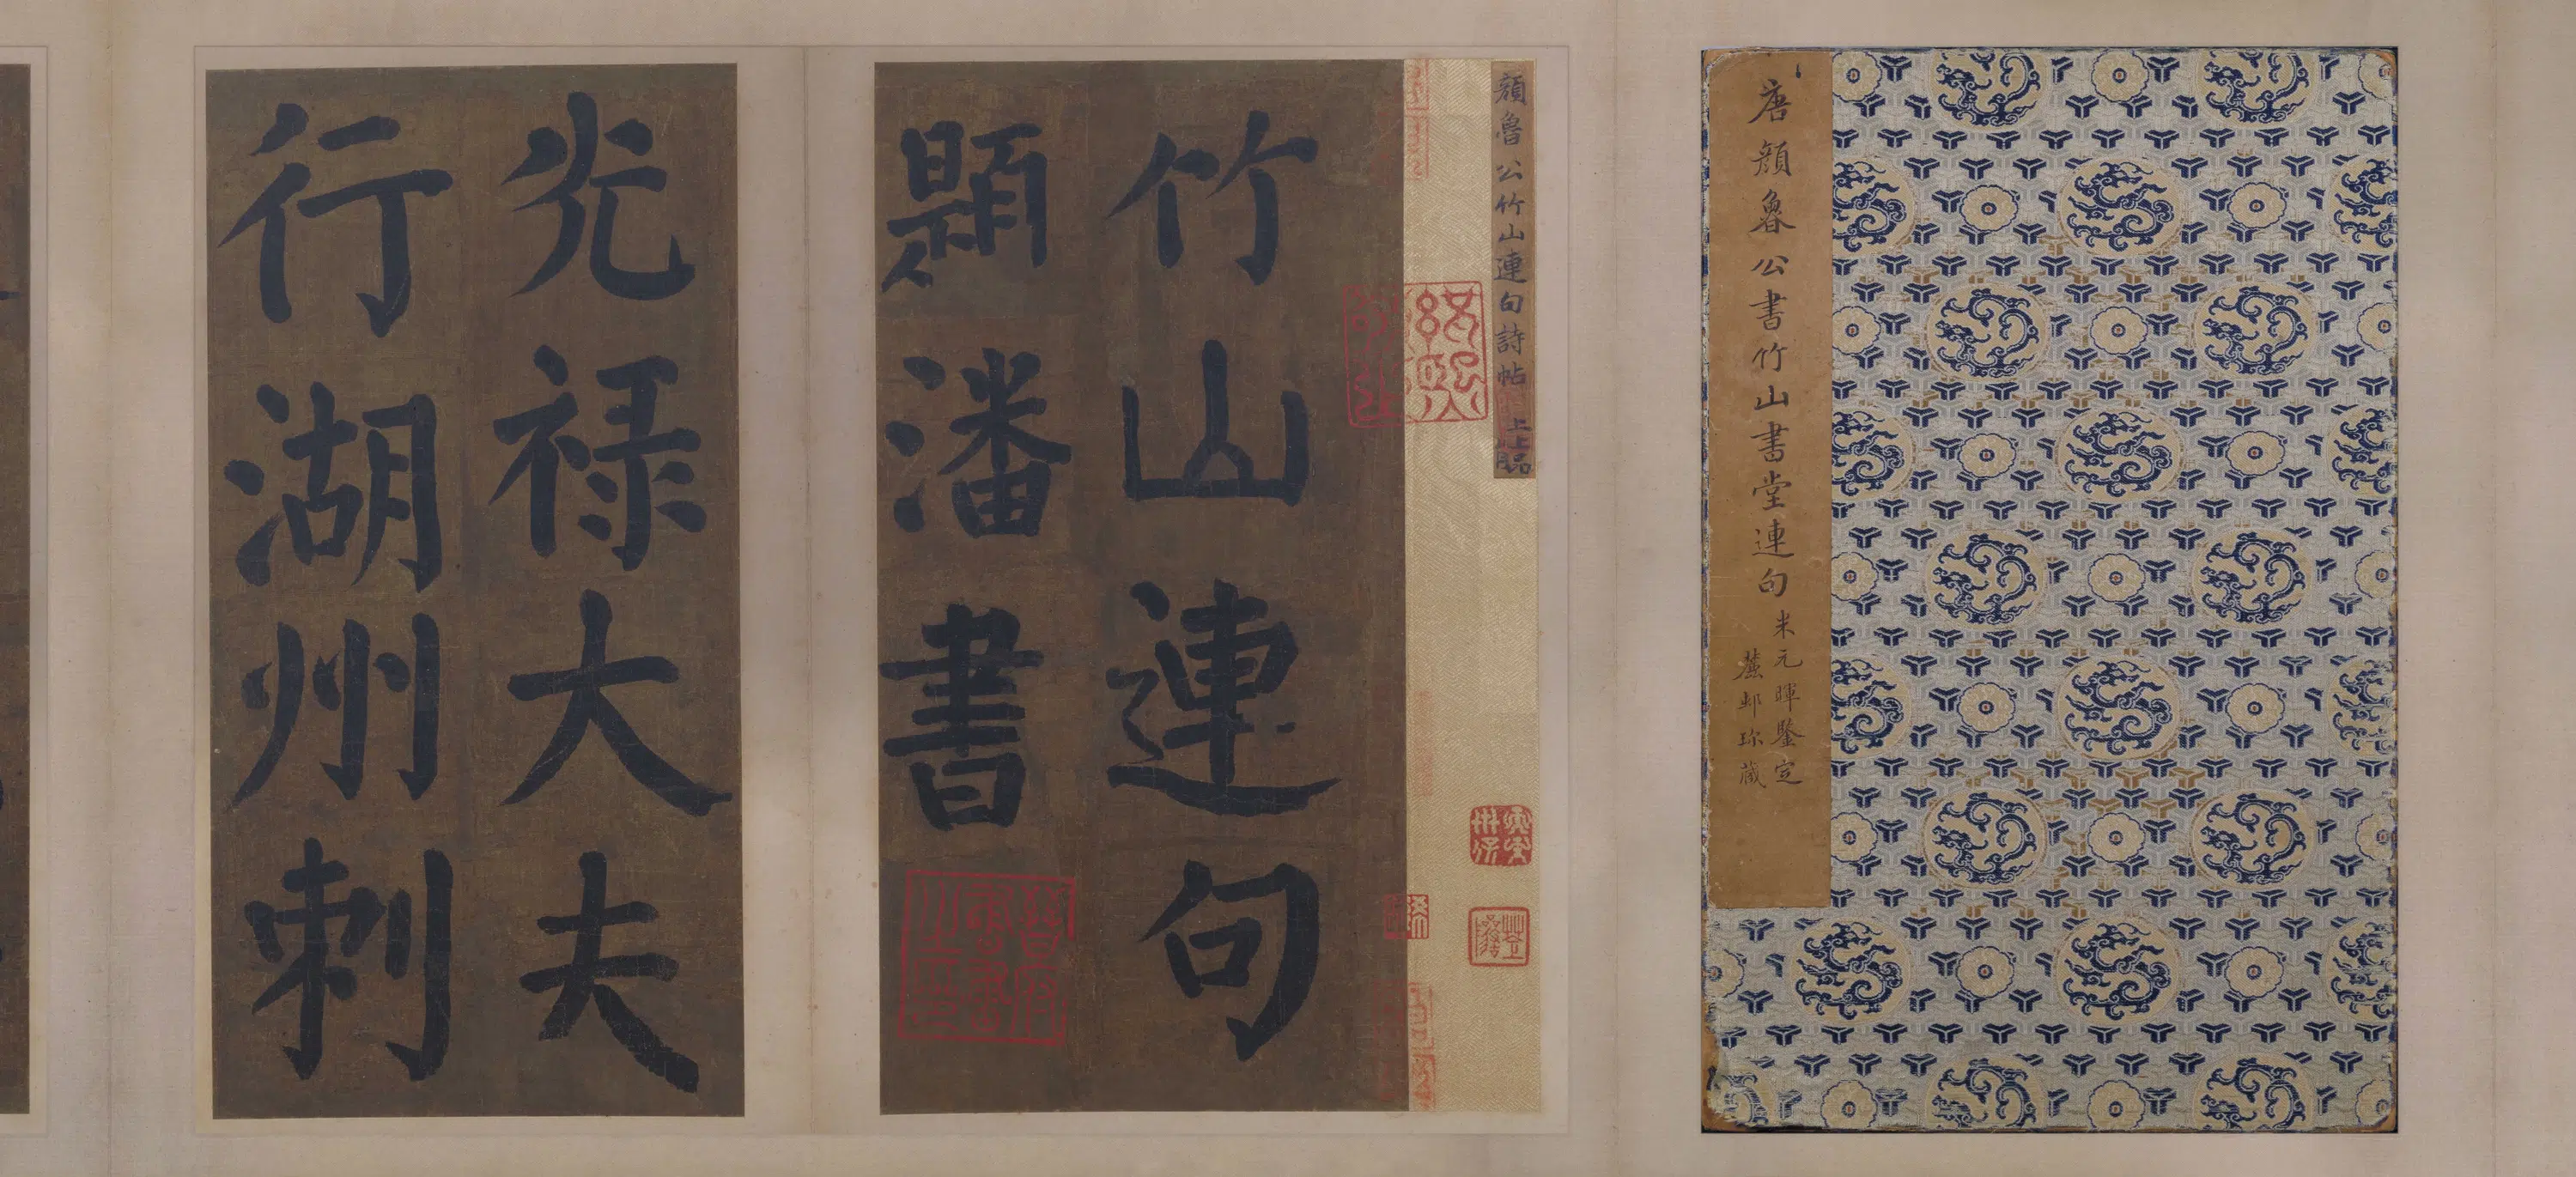 唐顏魯公書竹山書堂連句
米元暉鑒定
蕉邨珎藏
顏魯公竹山連句詩帖
上上品
竹山連句
題潘書
光禄大夫
行湖州刺